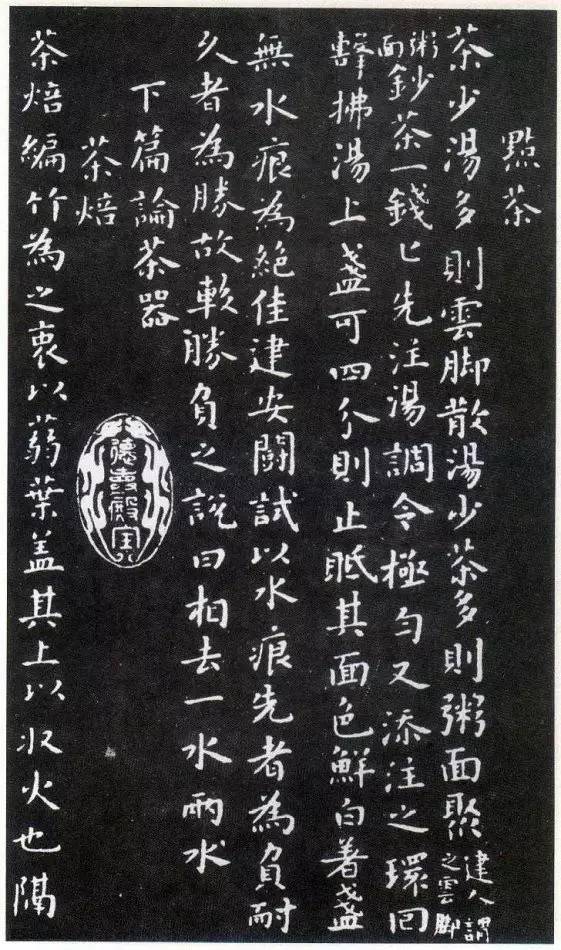 點茶
茶少湯多則雲脚散湯少茶多則粥面聚建人謂之雲脚
粥面鈔茶一錢匕先注湯調令極勻又添注之環回
擊拂湯上盞可四分則止眂其面色鮮白著盞
無水痕為絶佳建安鬪試以水痕先者為負耐
久者為勝故較勝負之說曰相去一水兩水
下篇論茶器
茶焙
德壽殿寶
茶焙編竹為之裹以蒻葉盖其上以収火也隔